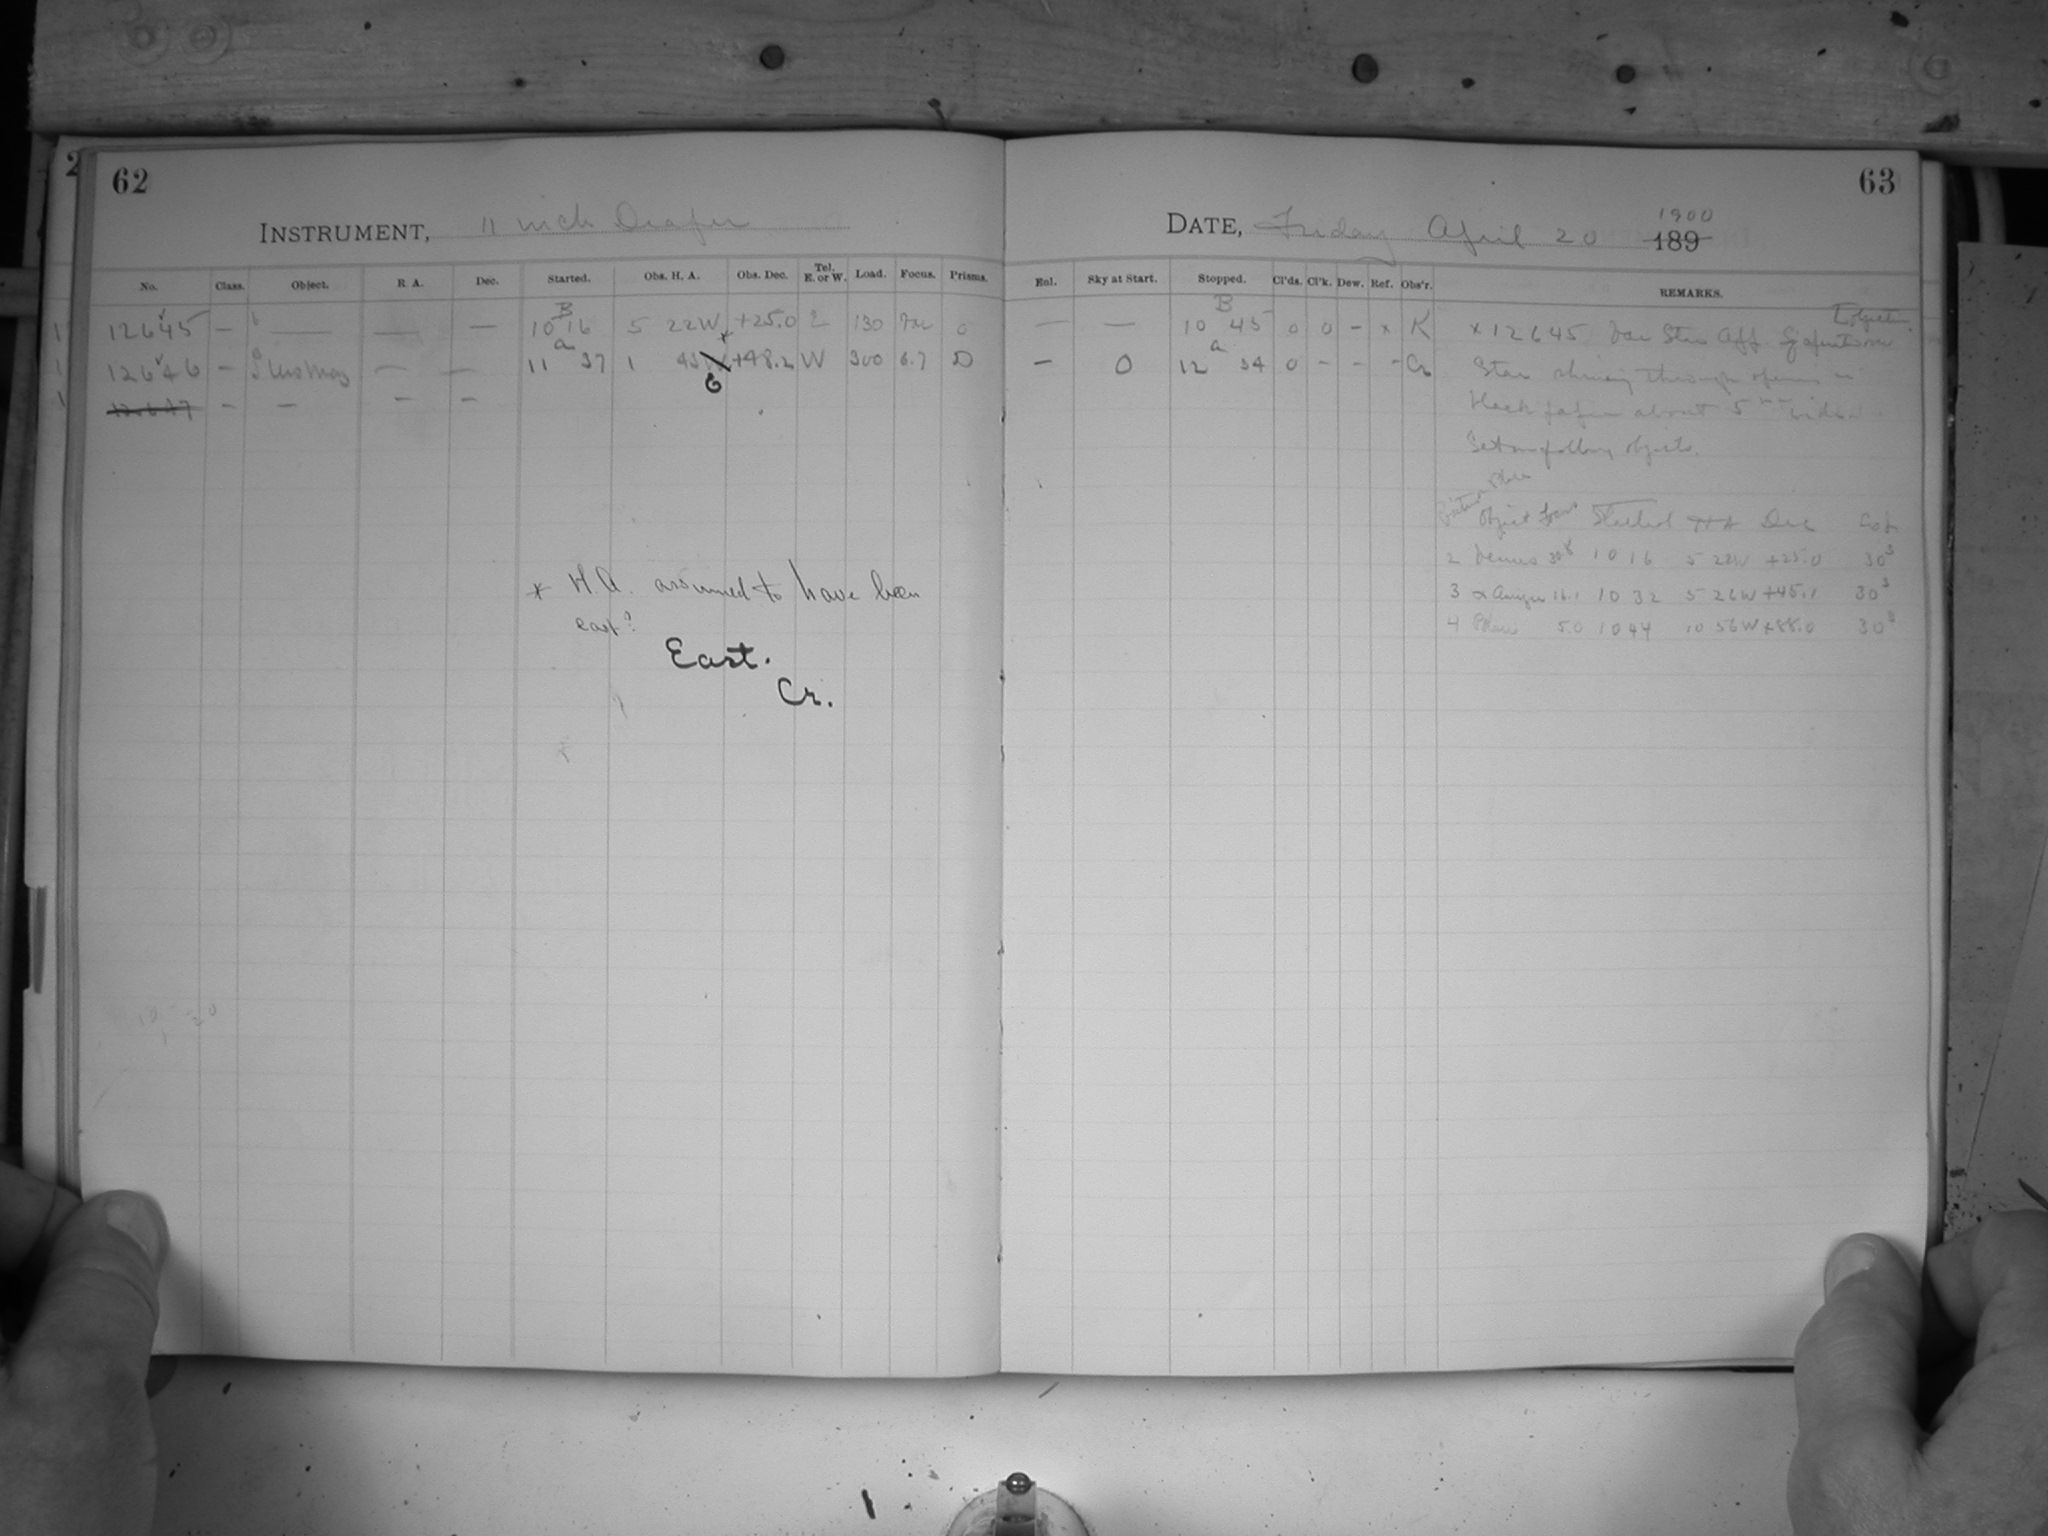 2
62
INSTRUMENT, 11 inch Draper
No. Class. Object. R. A. Dec. Started. Obs. H. A. Obs. Dec. Tel. E. or W. Load. Focus. Prisms.
B
12645 — — — — 10 16 5 22W +25.0 130 0
a
12646 — — — 11 37 1 43W +48.2 W 300 6.7 D
E
12647 — — — —
* H.A. assumed to have been
east?
East.
Cr.
63
DATE, Friday April 20 1900
189
Eol. Sky at Start. Stopped. Cl'ds. Cl'k. Dew. Ref. Obs'r. REMARKS.
B
— — 10 45 0 0 - x K x 12645
a
— 0 12 34 0 - - - Cr Star shining through
black paper about 5 mm
Set on following objects.
Object Started HA Dec
2 Venus 10 16 5 22W +25.0 30s
3 α 16.1 10 32 5 26W +45.1 30s
4 5.0 10 44 10 56W +88.0 30s